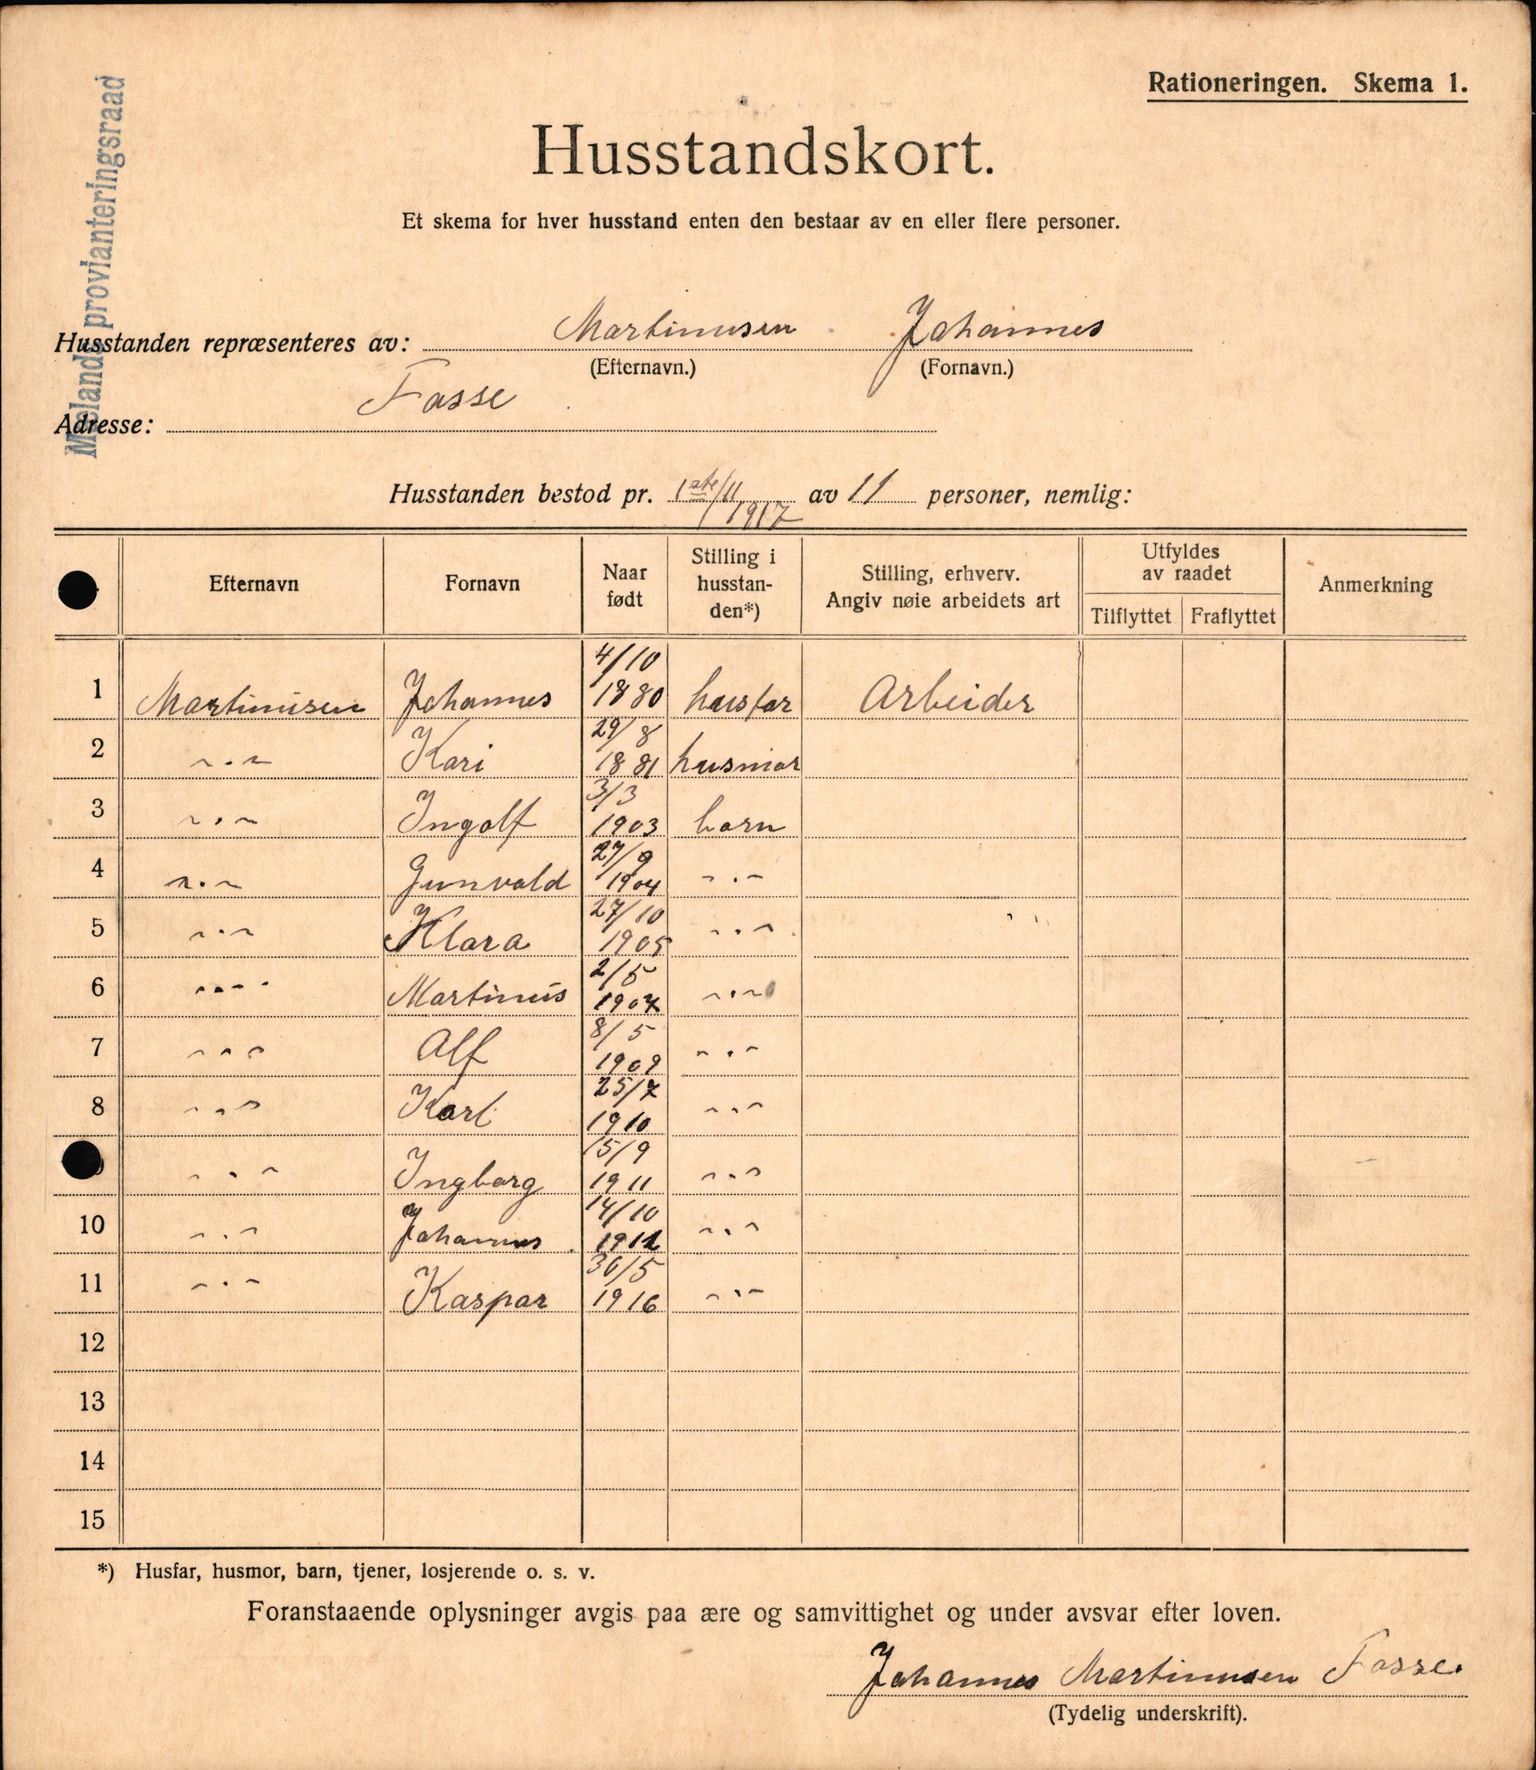 Rationeringen. Skema 1.
Mælands provianteringsraad
Husstandskort.
Et skema for hver husstand enten den bestaar av en eller flere personer.
Husstanden repræsenteres av: Martinusen Johannes
(Efternavn.) (Fornavn.)
Adresse: Fosse
Husstanden bestod pr. 1ste/11 1917 av 11 personer, nemlig:
Efternavn Fornavn Naar født Stilling i husstan-den*) Stilling, erhverv. Angiv nøie arbeidets art Utfyldes av raadet Tilflyttet Fraflyttet Anmerkning
1 Martinusen Johannes 4/10 1880 husfar Arbeider
2 "-" Kari 29/8 1881 husmor
3 "-" Ingolf 3/3 1903 barn
4 "-" Gunvald 27/9 1904 "-"
5 "-" Klara 27/10 1905 "-"
6 "-" Martinus 2/5 1907 "-"
7 "-" Alf 8/5 1909 "-"
8 "-" Karl 25/7 1910 "-"
"-" Ingborg 15/9 1911 "-"
10 "-" Johannes 14/10 1912 "-"
11 "-" Kaspar 30/5 1916 "-"
12
13
14
15
*) Husfar, husmor, barn, tjener, losjerende o. s. v.
Foranstaaende oplysninger avgis paa ære og samvittighet og under avsvar efter loven.
Johannes Martinusen Fosse.
(Tydelig underskrift).